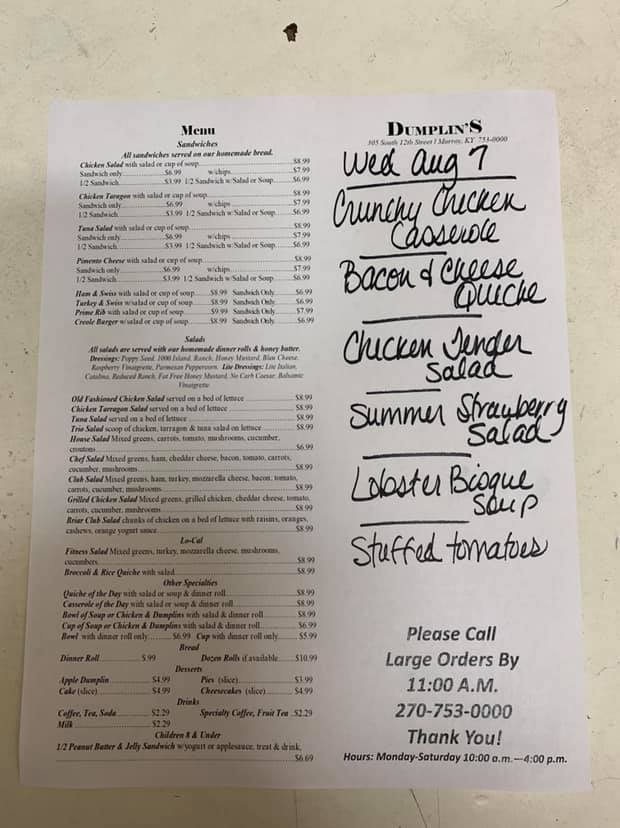 Menu
Sandwiches
All sandwiches served on our homemade bread.
Chicken Salad with salad or cup of soup $8.99
Sandwich only $6.99 w/chips $7.99
1/2 Sandwich $3.99 1/2 Sandwich w/Salad or Soup $6.99
Chicken Taragon with salad or cup of soup $8.99
Sandwich only $6.99 w/chips $7.99
1/2 Sandwich $3.99 1/2 Sandwich w/Salad or Soup $6.99
Tuna Salad with salad or cup of soup $8.99
Sandwich only $6.99 w/chips $7.99
1/2 Sandwich $3.99 1/2 Sandwich w/Salad or Soup $6.99
Pimento Cheese with salad or cup of soup $8.99
Sandwich only $6.99 w/chips $7.99
1/2 Sandwich $3.99 1/2 Sandwich w/Salad or Soup $6.99
Ham & Swiss with salad or cup of soup $8.99 Sandwich Only $6.99
Turkey & Swiss w/salad or cup of soup $8.99 Sandwich Only $6.99
Prime Rib with salad or cup of soup $9.99 Sandwich Only $7.99
Creole Burger w/salad or cup of soup $8.99 Sandwich Only $6.99
Salads
All salads are served with our homemade dinner rolls & honey butter.
Dressings: Poppy Seed, 1000 Island, Ranch, Honey Mustard, Bleu Cheese,
Raspberry Vinaigrette, Parmesan Peppercorn. Lite Dressings: Lite Italian,
Catalina, Reduced Ranch, Fat Free Honey Mustard, No Carb Caesar, Balsamic
Vinaigrette
Old Fashioned Chicken Salad served on a bed of lettuce $8.99
Chicken Tarragon Salad served on a bed of lettuce $8.99
Tuna Salad served on a bed of lettuce $8.99
Trio Salad scoop of chicken, tarragon & tuna salad on lettuce $8.99
House Salad Mixed greens, carrots, tomato, mushrooms, cucumber,
croutons $6.99
Chef Salad Mixed greens, ham, cheddar cheese, bacon, tomato, carrots,
cucumber, mushrooms $8.99
Club Salad Mixed greens, ham, turkey, mozzarella cheese, bacon, tomato,
carrots, cucumber, mushrooms $8.99
Grilled Chicken Salad Mixed greens, grilled chicken, cheddar cheese, tomato,
carrots, cucumber, mushrooms $8.99
Briar Club Salad chunks of chicken on a bed of lettuce with raisins, oranges,
cashews, orange yogurt sauce $8.99
Lo-Cal
Fitness Salad Mixed greens, turkey, mozzarella cheese, mushrooms,
cucumbers $8.99
Broccoli & Rice Quiche with salad $8.99
Other Specialties
Quiche of the Day with salad or soup & dinner roll $8.99
Casserole of the Day with salad or soup & dinner roll $8.99
Bowl of Soup or Chicken & Dumplins with salad & dinner roll $8.99
Cup of Soup or Chicken & Dumplins with salad & dinner roll $6.99
Bowl with dinner roll only $6.99 Cup with dinner roll only $5.99
Bread
Dinner Roll $.99 Dozen Rolls if available $10.99
Desserts
Apple Dumplin $4.99 Pies (slice) $3.99
Cake (slice) $4.99 Cheesecakes (slice) $4.99
Drinks
Coffee, Tea, Soda $2.29 Specialty Coffee, Fruit Tea $2.29
Milk $2.29
Children 8 & Under
1/2 Peanut Butter & Jelly Sandwich w/yogurt or applesauce, treat & drink,
$6.69
DUMPLIN'S
305 South 12th Street | Murray, KY 753-0000
Wed Aug 7
Crunchy Chicken
Casserole
Bacon & Cheese
Quiche
Chicken Tender
Salad
Summer Strawberry
Salad
Lobster Bisque
Soup
Stuffed tomatoes
Please Call
Large Orders By
11:00 A.M.
270-753-0000
Thank You!
Hours: Monday-Saturday 10:00 a.m.—4:00 p.m.